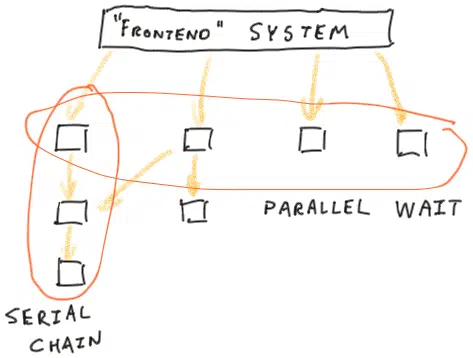 "FRONTEND" SYSTEM
PARALLEL WAIT
SERIAL
CHAIN